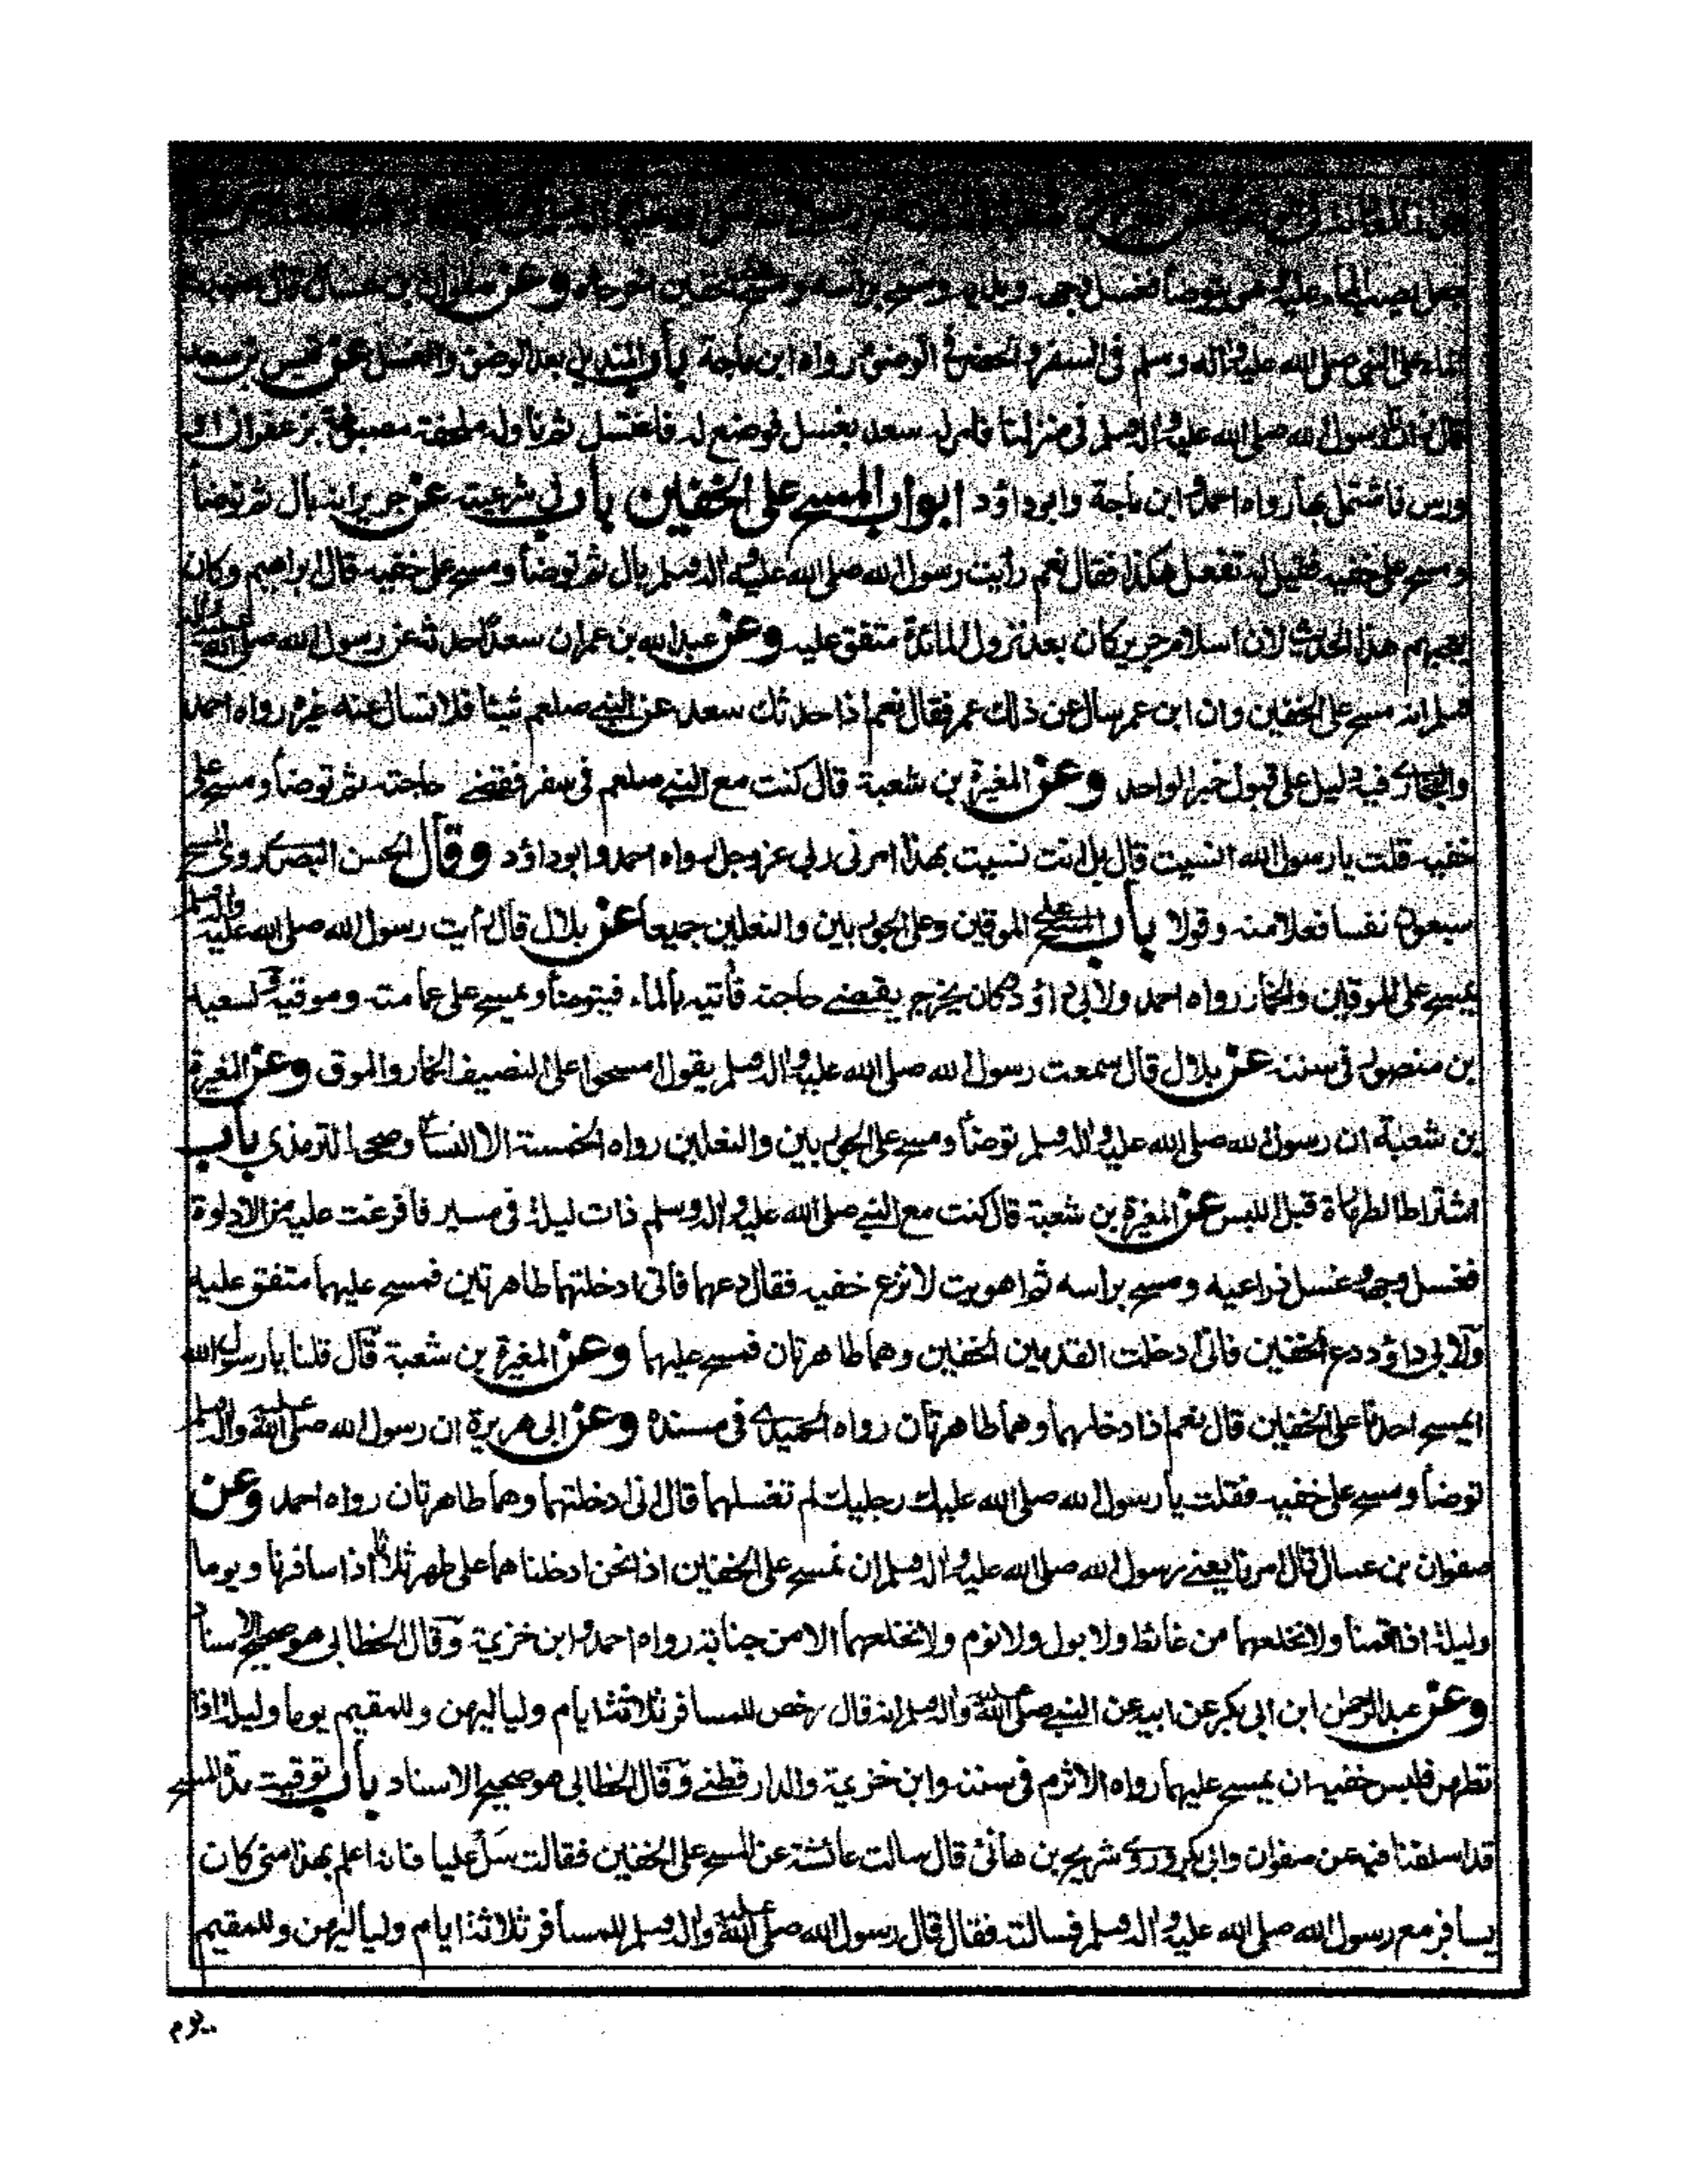 جعل يصب الماء عليه وهو يتوضأ فغسل وجهه ويديه ومسح برأسه ومسح على الخفين اخرجاه وعن صفوان بن عسال قال صببت
الماء على النبي صلى الله عليه واله وسلم فى السفر والحضر فى الوضوء رواه ابن ماجة باب المنديل بعد الوضوء والغسل عن قيس بن سعد
قال زارنا رسول الله صلى الله عليه واله وسلم فى منزلنا فامر له سعد بغسل فوضع له فاغتسل ثم ناوله ملحفة مصبوغة بزعفران او
ورس فاشتمل بها رواه احمد وابن ماجة وابوداؤد ابواب المسح على الخفين باب فى شرعيته عن جرير انه بال ثم توضأ
ومسح على خفيه فقيل له تفعل هكذا فقال نعم رأيت رسول الله صلى الله عليه واله وسلم بال ثم توضأ ومسح على خفيه قال ابراهيم وكان
يعجبهم هذا الحديث لان اسلام جرير كان بعد نزول المائدة متفق عليه وعن عبد الله بن عمر ان سعدًا حدثه عن رسول الله صلى الله عليه واله
وسلم انه مسح على الخفين وان ابن عمر سال عن ذلك عمر فقال نعم اذا حدثك سعد عن النبي صلعم شيئا فلا تسال عنه غيره رواه احمد
والبخاري فيه دليل على قبول خبر الواحد وعن المغيرة بن شعبة قال كنت مع النبي صلعم فى سفر فقضى حاجته ثم توضأ ومسح على
خفيه قلت يا رسول الله انسيت قال بل انت نسيت بهذا امرنى ربى عز وجل رواه احمد وابوداؤد وقال الحسن البصري روى المسح
سبعون نفسا فعلا منه وقولا باب المسح على الموقين وعلى الجوربين والنعلين جميعا عن بلال قال رأيت رسول الله صلى الله عليه واله وسلم
يمسح على الموقين والخمار رواه احمد ولابى داؤد كان يخرج يقضى حاجته فأتيه بالماء فيتوضأ ويمسح على عمامته وموقيه ولسعيد
بن منصور فى سننه عن بلال قال سمعت رسول الله صلى الله عليه واله وسلم يقول امسحوا على النصيف الخمار والموق وعن المغيرة
بن شعبة ان رسول الله صلى الله عليه واله وسلم توضأ ومسح على الجوربين والنعلين رواه الخمسة الا النسائى وصححه الترمذي باب
اشتراط الطهارة قبل اللبس عن المغيرة بن شعبة قال كنت مع النبي صلى الله عليه واله وسلم ذات ليلة فى مسير فأفرغت عليه من الاداوة
فغسل وجهه وغسل ذراعيه ومسح براسه ثم اهويت لانزع خفيه فقال دعهما فانى ادخلتهما طاهرتين فمسح عليهما متفق عليه
ولابى داؤد دع الخفين فانى ادخلت القدمين الخفين وهما طاهرتان فمسح عليهما وعن المغيرة بن شعبة قال قلنا يا رسول الله
ايمسح احدنا على الخفين قال نعم اذا ادخلهما وهما طاهرتان رواه الحميدي فى مسنده وعن ابى هريرة ان رسول الله صلى الله عليه واله وسلم
توضأ ومسح على خفيه فقلت يا رسول الله صلى الله عليك رجليك لم تغسلهما قال انى ادخلتهما وهما طاهرتان رواه احمد وعن
صفوان بن عسال قال امرنا يعنى رسول الله صلى الله عليه واله وسلم ان نمسح على الخفين اذا نحن ادخلناهما على طهر ثلاثا اذا سافرنا ويوما
وليلة اذا اقمنا ولا نخلعهما من غائط ولا بول ولا نوم ولا نخلعهما الا من جنابة رواه احمد وابن خزيمة وقال الخطابى هو صحيح الاسناد
وعن عبد الرحمن ابن ابى بكر عن ابيه عن النبي صلى الله عليه واله وسلم انه قال رخص للمسافر ثلاثة ايام ولياليهن وللمقيم يوما وليلة اذا
تطهر فلبس خفيه ان يمسح عليهما رواه الاثرم فى سننه وابن خزيمة والدارقطنى وقال الخطابى هو صحيح الاسناد باب توقيت مدة المسح
قد اسلفنا فيه عن صفوان وابى بكر وروى شريح بن هانئ قال سالت عائشة عن المسح على الخفين فقالت سل عليا فانه اعلم بهذا منى كان
يسافر مع رسول الله صلى الله عليه واله وسلم فسالته فقال قال رسول الله صلى الله عليه واله وسلم للمسافر ثلاثة ايام ولياليهن وللمقيم
يوم